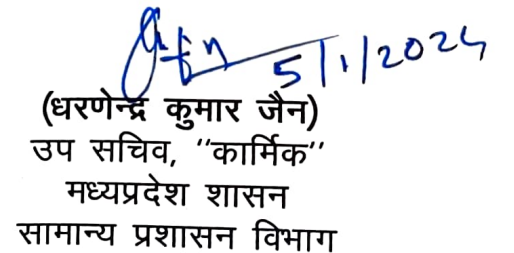 5/1/2024
(धरणेन्द्र कुमार जैन)
उप सचिव, ''कार्मिक''
मध्यप्रदेश शासन
सामान्य प्रशासन विभाग